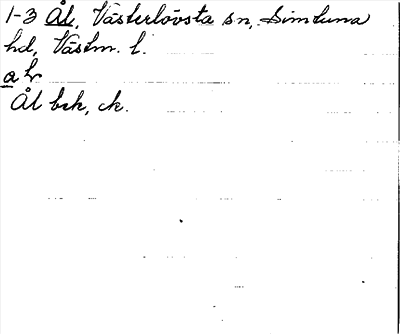 1-3 Ål, Västerlövsta sn, Simtuna
hd, Västm. l.
a hr
Ål bek, ek.